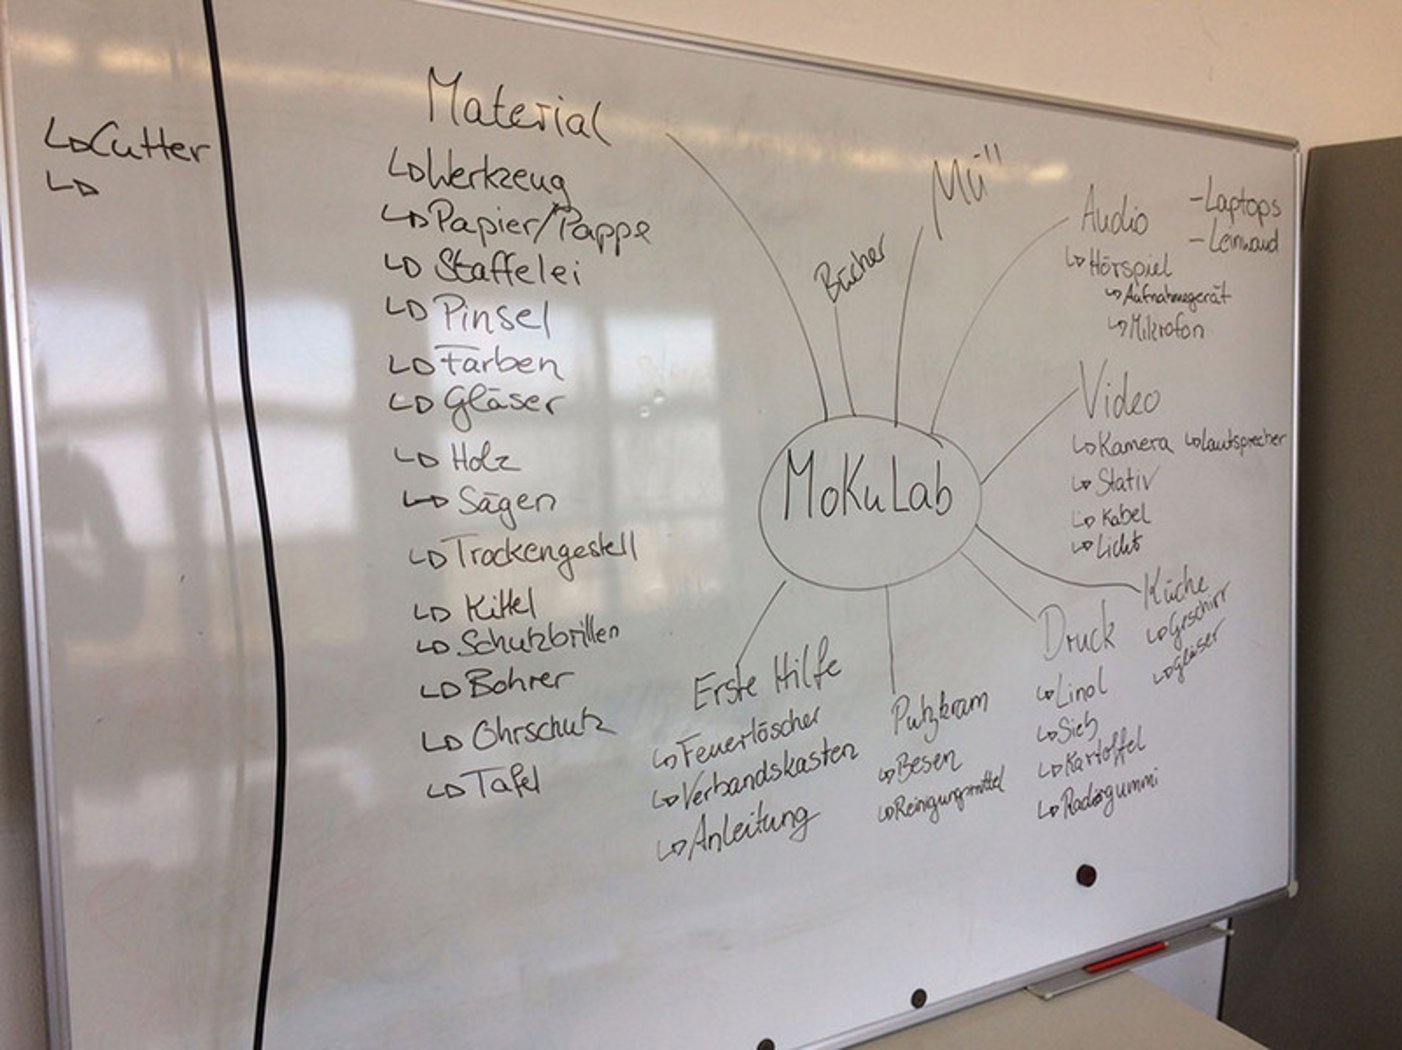 ↳Cutter
↳
Material
↳Werkzeug
↳Papier/Pappe
↳Staffelei
↳Pinsel
↳Farben
↳Gläser
↳Holz
↳Sägen
↳Trockengestell
↳Kittel
↳Schutzbrillen
↳Bohrer
↳Ohrschutz
↳Tafel
Bücher
Müll
Audio
↳Hörspiel
↳Aufnahmegerät
↳Mikrofon
-Laptops
-Leinwand
MoKuLab
Video
↳Kamera ↳Lautsprecher
↳Stativ
↳Kabel
↳Licht
Küche
↳Geschirr
↳gläser
Druck
↳Linol
↳Sieb
↳Kartoffel
↳Radiergummi
Putzkram
↳Besen
↳Reinigungsmittel
Erste Hilfe
↳Feuerlöscher
↳Verbandskasten
↳Anleitung